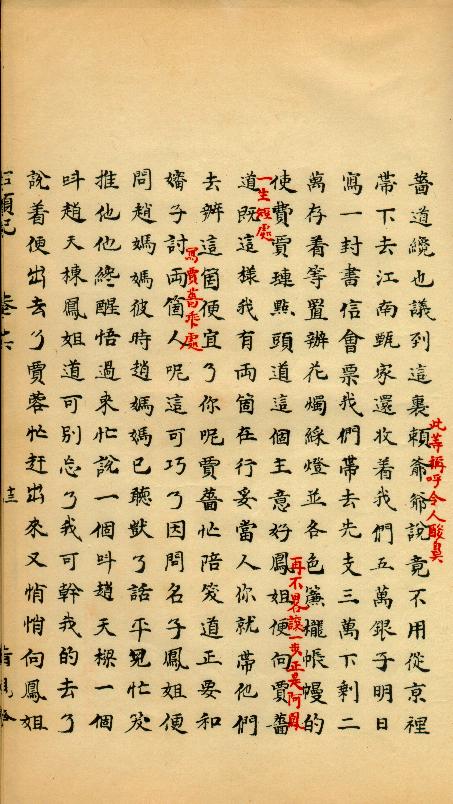 薔道纔也議到這裏賴爺爺說竟不用從京裡
此等稱呼令人酸鼻
帶下去江南甄家還收着我們五萬銀子明日
寫一封書信會票我們帶去先支三萬下剩二
萬存着等置辦花燭綵燈並各色簾櫳帳幔的
再不畧讓一步正是阿鳳
一生短處
使費賈璉點頭道這個主意好鳳姐便向賈薔
道既這樣我有両箇在行妥當人你就帶他們
去辦這箇便宜了你呢賈薔忙陪笑道正要和
寫賈薔乖處
嬸子討両箇人呢這可巧了因問名子鳳姐便
問趙媽媽彼時趙媽媽已聽獃了話平兒忙笑
推他他終醒悟過來忙說一個呌趙天樑一個
呌趙天棟鳳姐道可別忘了我可幹我的去了
說着便出去了賈蓉忙赶出來又悄悄向鳳姐
石頭記 卷十六 十三